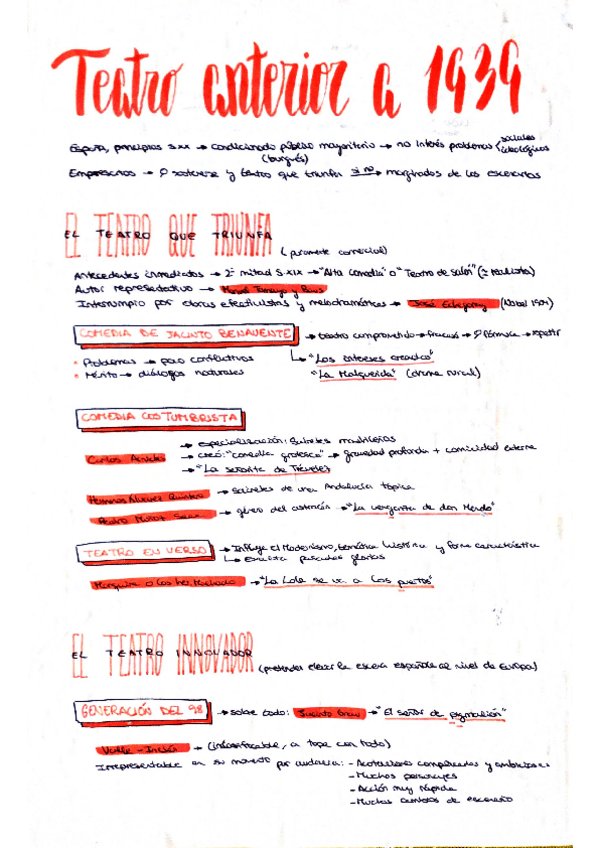 Teatro anterior a 1939
España, principios s.XX → condicionado público mayoritario → no interés problemas sociales
(burgués) ideológicos
Empresarios → sostenerse y teatro que triunfa si no → marginados de los escenarios
EL TEATRO QUE TRIUNFA
(puramente comercial)
Antecedentes inmediatos → 2ª mitad S.XIX → "Alta comedia" o "Teatro de Salón" (realista)
Autor representativo → Manuel Tamayo y Baus
Interrumpio por obras efectivistas y melodramáticas → José Echegaray (Nobel 1904)
COMEDIA DE JACINTO BENAVENTE → teatro comprometido → fracasó → fórmula → repetir
• Problemas → poco conflictivos → "Los intereses creados"
• Mérito → diálogos naturales "La Malquerida" (drama rural)
COMEDIA COSTUMBRISTA
→ especialización: Sainetes madrileños
Carlos Arniches → creó: "comedia grotesca" → gravedad profunda + comicidad externa
→ "La señorita de Trévelez"
Hermanos Álvarez Quintero → sainetes de una Andalucía tópica
Pedro Muñoz Seca → género del astracán → "La venganza de don Mendo"
TEATRO EN VERSO → Influye el Modernismo, temática histórica y forma característica
→ Exalta pasadas glorias
Marquina o los hnos. Machado → "La Lola se va a los puertos"
EL TEATRO INNOVADOR
(pretenden elevar la escena española al nivel de Europa)
GENERACIÓN DEL 98 → sobre todo: Jacinto Grau → "El señor de pigmalión"
Valle-Inclán → (inclasificable, a tope con todo)
Irrepresentable en su momento por audacia: - Acotaciones complicadas y ambiciosas
- Muchos personajes
- Acción muy rápida
- Muchos cambios de escenario